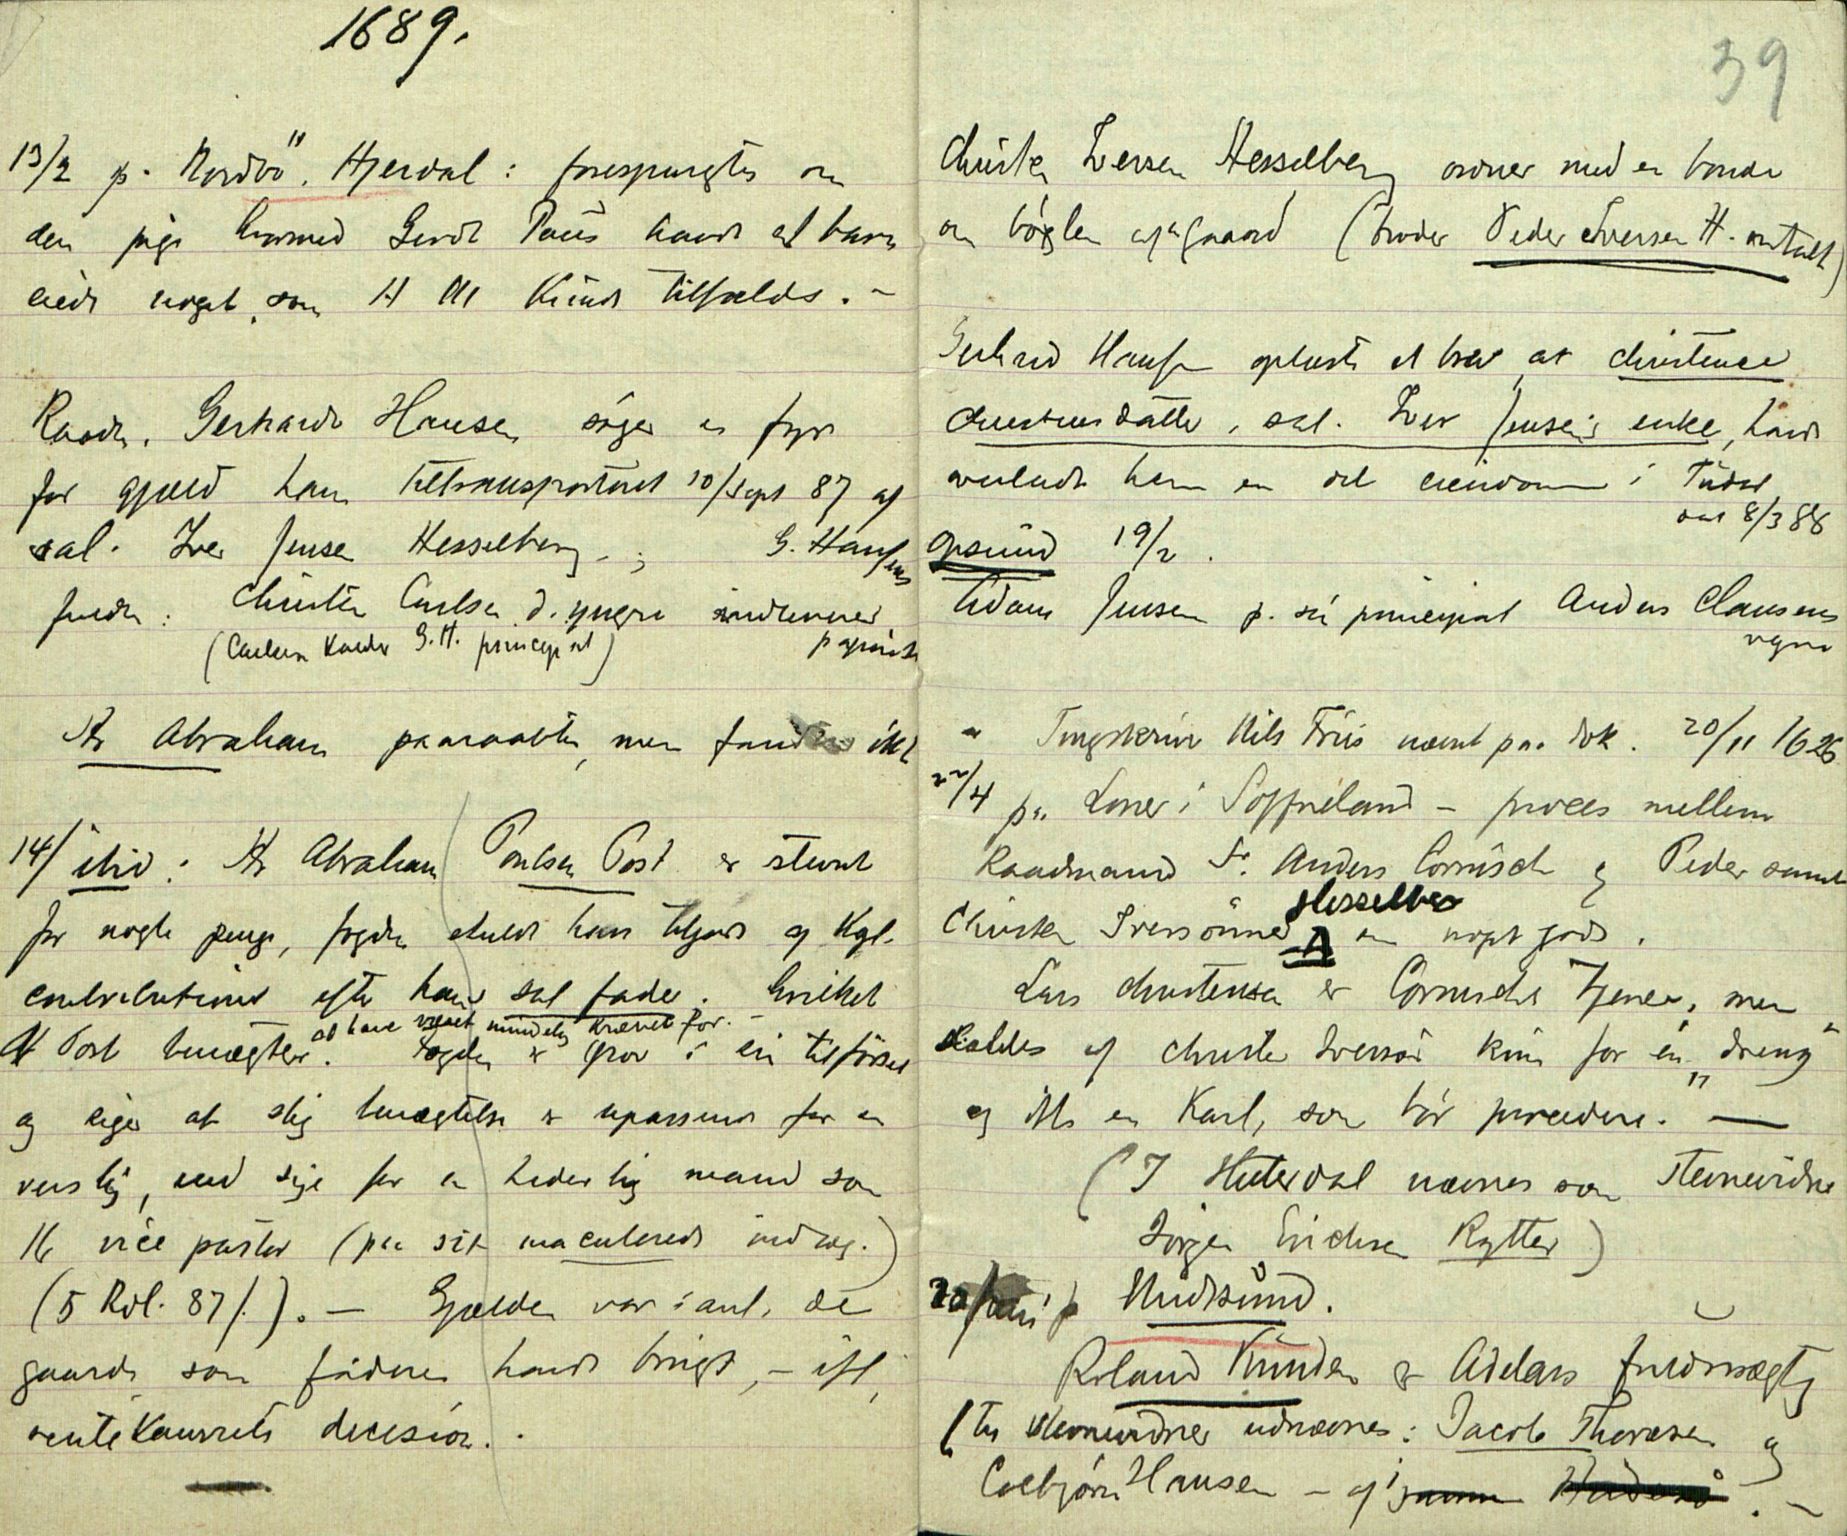 1689.
13/2 p. Nordbö, Hjerdal: forespurgtes om
den pige hvormed Gerdt Paus havde et barn
eiede noget som H M Kunde tilfalde. -
Raadm. Gerhardt Hansen søger en fyr
for gjæld ham tiltransporteret 10/Sept 87 af
sal. Iver Jensen Hesselberg. ; G. Hansens
fuldm: Christen Carlsen d. yngre indleverer
(Carlsen kalder G.H. principal) papirerne
Hr Abraham paaraabtes, men fandtes ikke
14/ ibid: Hr Abraham Poulsen Post er stevnt
for nogle penge, fogden skulde hans tilgode og Kgl.
contributioner efter hans sal fader. Hvilket
at have været mindelig krævet for. -
H Post benægter. Fogden er grov i en tilførsel
og siger at slig benægtelse er upassende for en
verslig, end sige for en hæderlig mand som
Hr vice pastor (paa sit maculerede indlæg.)
(5 Rdl. 87 /.). - Gjælden var i anl. de
gaarde som faderen havde brugt, - ifl.
rentekammerets decision.
39
Christen Iversen Hesselberg ordner med en bonde
om bøxlen af gaard (broder Peder Iversen H. omtalt)
Gerhard Hansen oplæste et brev at Christence
Christensdatter, sal. Iver Jensens enke, havde
avladt ham en del eiendom i Tudal
dat 8/3 88
Opsund 19/2.
Adam Jensen p. sin principal Anders Clausens
vegne
" Tingskriver Nils Friis nævnt paa dok. 20/11 1626
22/4 paa Loner i Soffueland - proces mellem
Raadmand Sr. Anders Cornisch og Peder samt
Christen Iversönner Hesselberg om noget gods.
Lars Christensen er Cornischs Tjener, men
kaldes af Christen Iversön kun for en "dreng"
og ikke en Karl, som bör procedere. -
(I Hiterdal nævnes som stevnevidne
Jörgen Erichsen Rytter)
20/juni p Hudsund.
Roland Knudsen er Adelars fuldmægtig
(til stevnevidner udnævnes: Jacob Thoresen og
Colbjörn Hansen - af